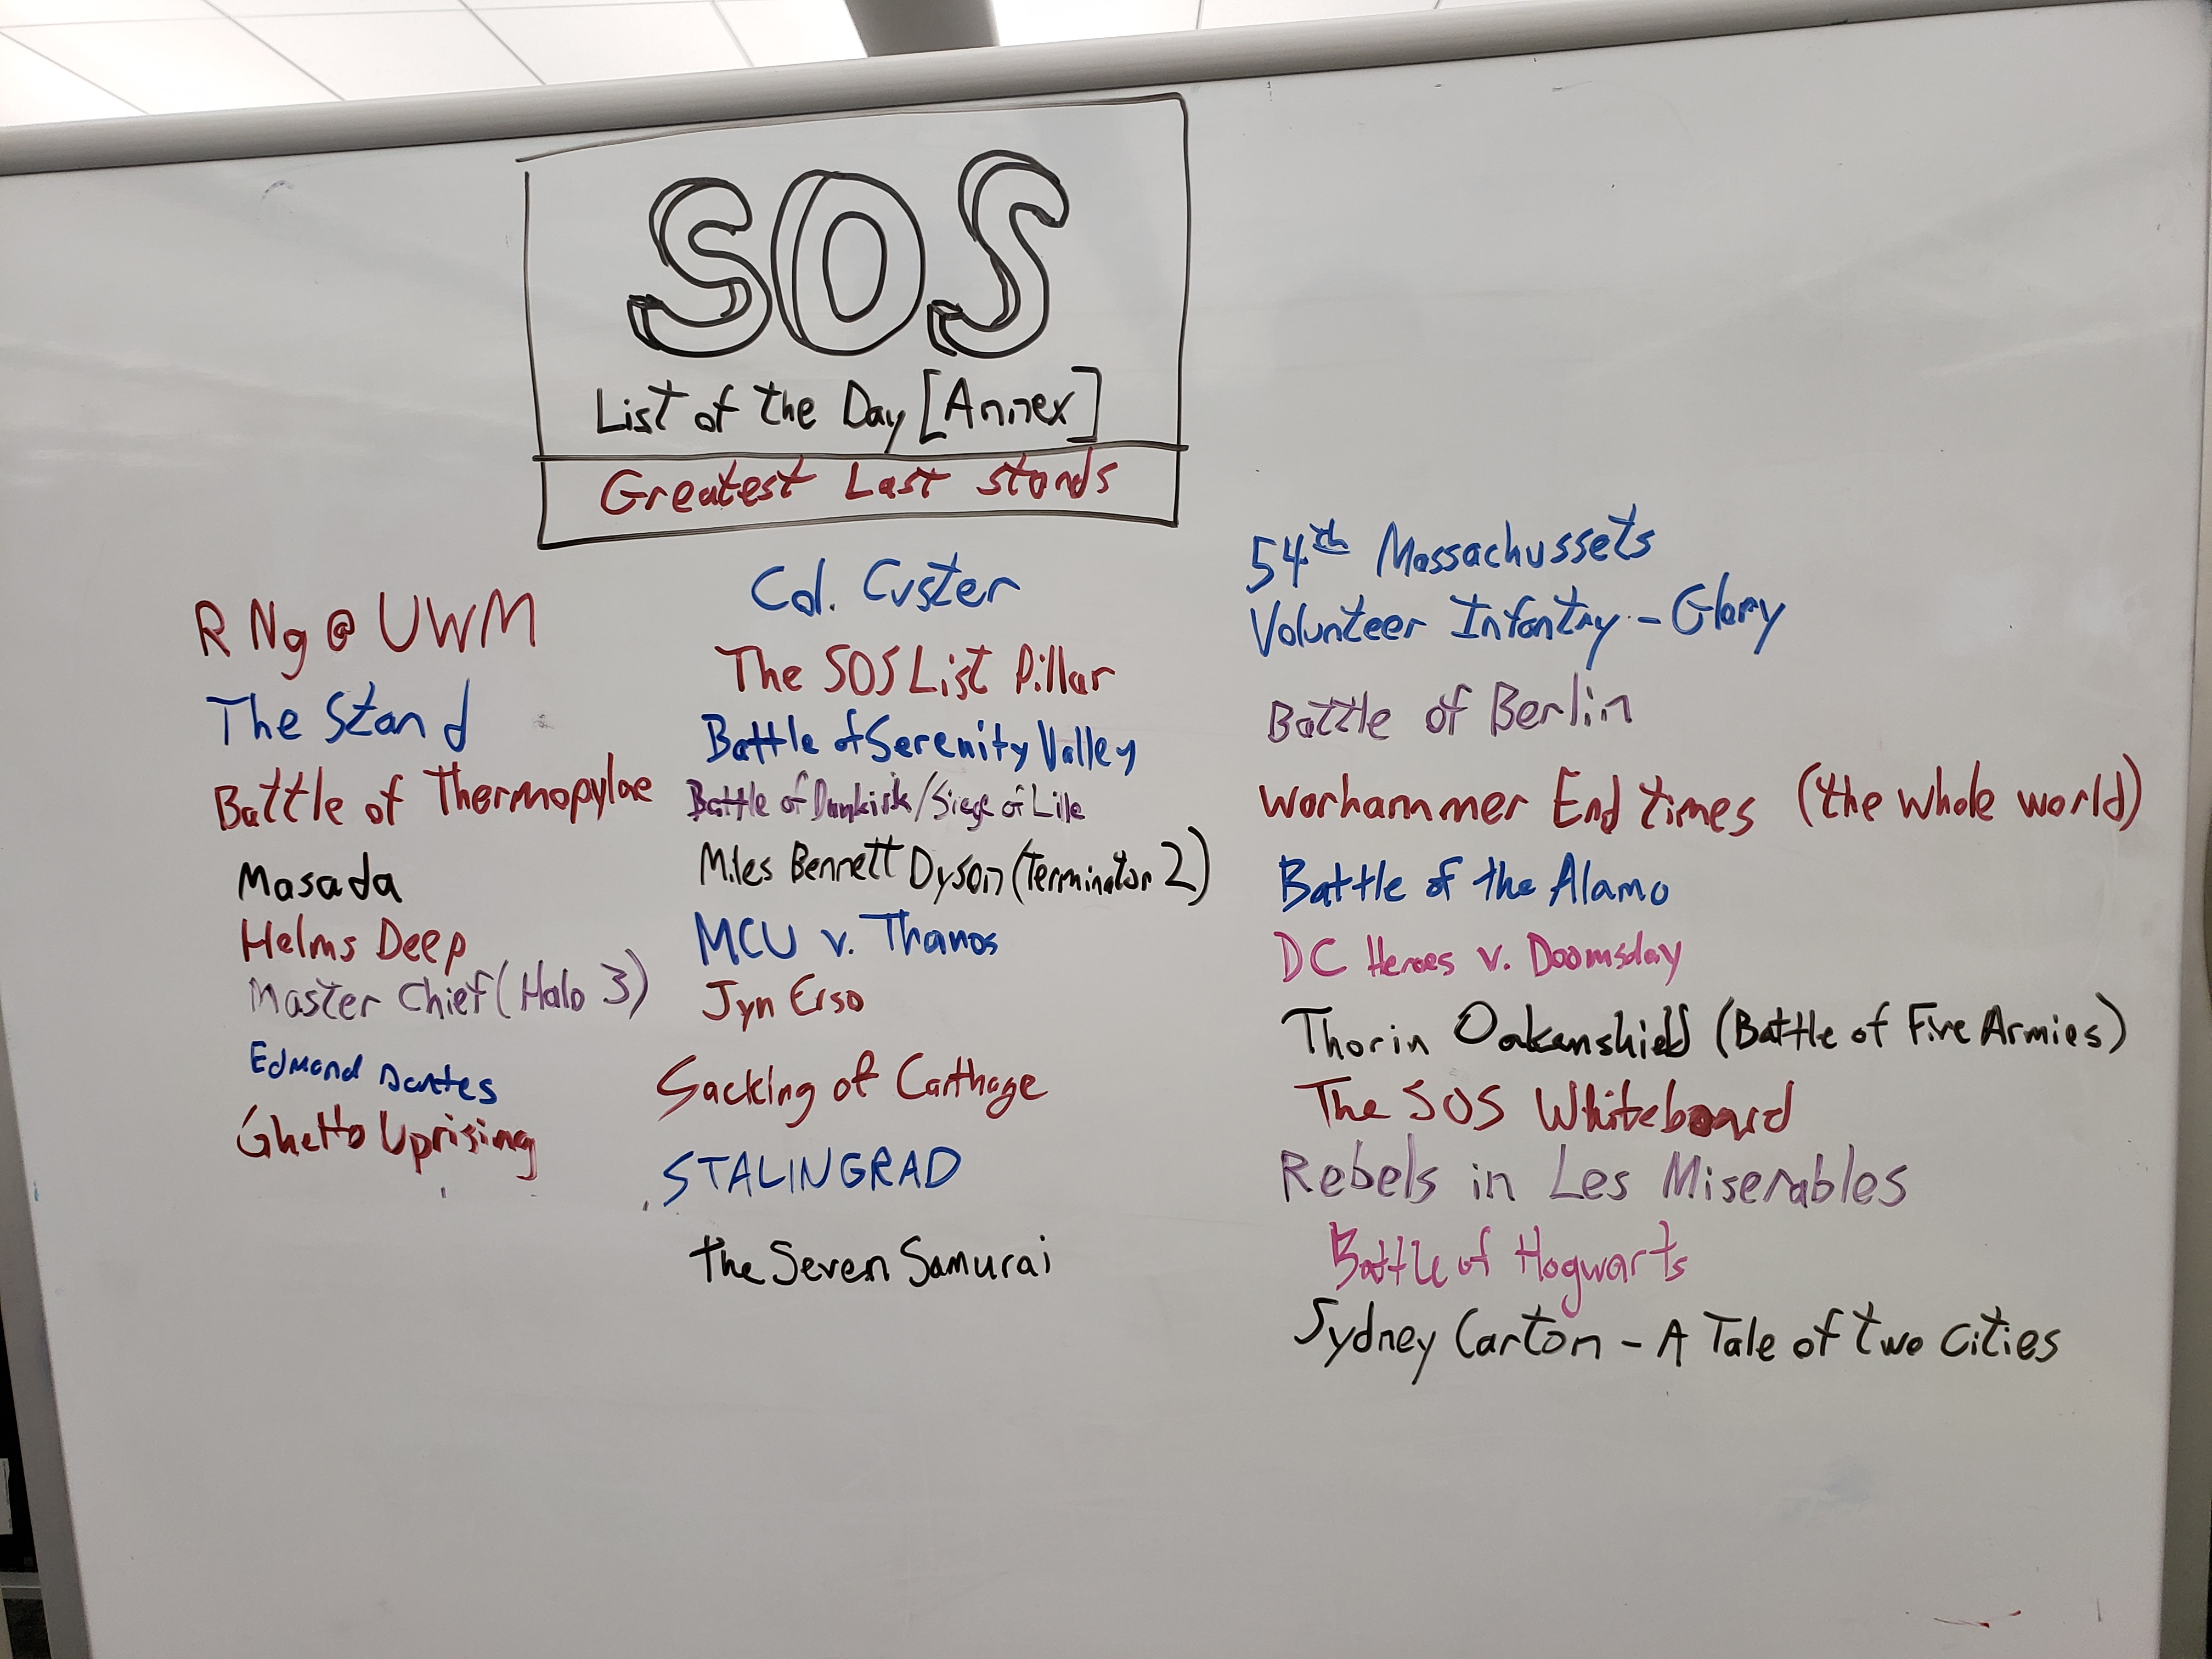 SOS
List of the Day [Annex]
Greatest Last Stands
R Ng @ UWM
The Stand
Battle of Thermopylae
Masada
Helms Deep
Master Chief (Halo 3)
Edmond Dantes
Ghetto Uprising
Col. Custer
The SOS List Pillar
Battle of Serenity Valley
Battle of Dunkirk/Siege of Lille
Miles Bennett Dyson (Terminator 2)
MCU v. Thanos
Jyn Erso
Sacking of Carthage
STALINGRAD
the Seven Samurai
54th Massachussets
Volunteer Infantry - Glory
Battle of Berlin
Warhammer End times (the whole world)
Battle of the Alamo
DC Heroes v. Doomsday
Thorin Oakenshield (Battle of Five Armies)
The SOS Whiteboard
Rebels in Les Miserables
Battle of Hogwarts
Sydney Carton - A Tale of two cities